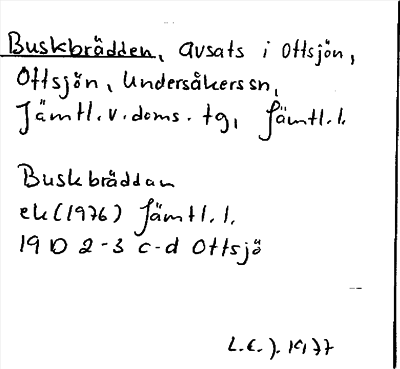 Buskbrädden, avsats i Ottsjön,
Ottsjön, Undersåkers sn,
Jämtl. v. doms. tg, Jämtl. l.
Buskbräddan
ek (1976) Jämtl. l.
19 D 2-3 c-d Ottsjö
L.E.J. 1977